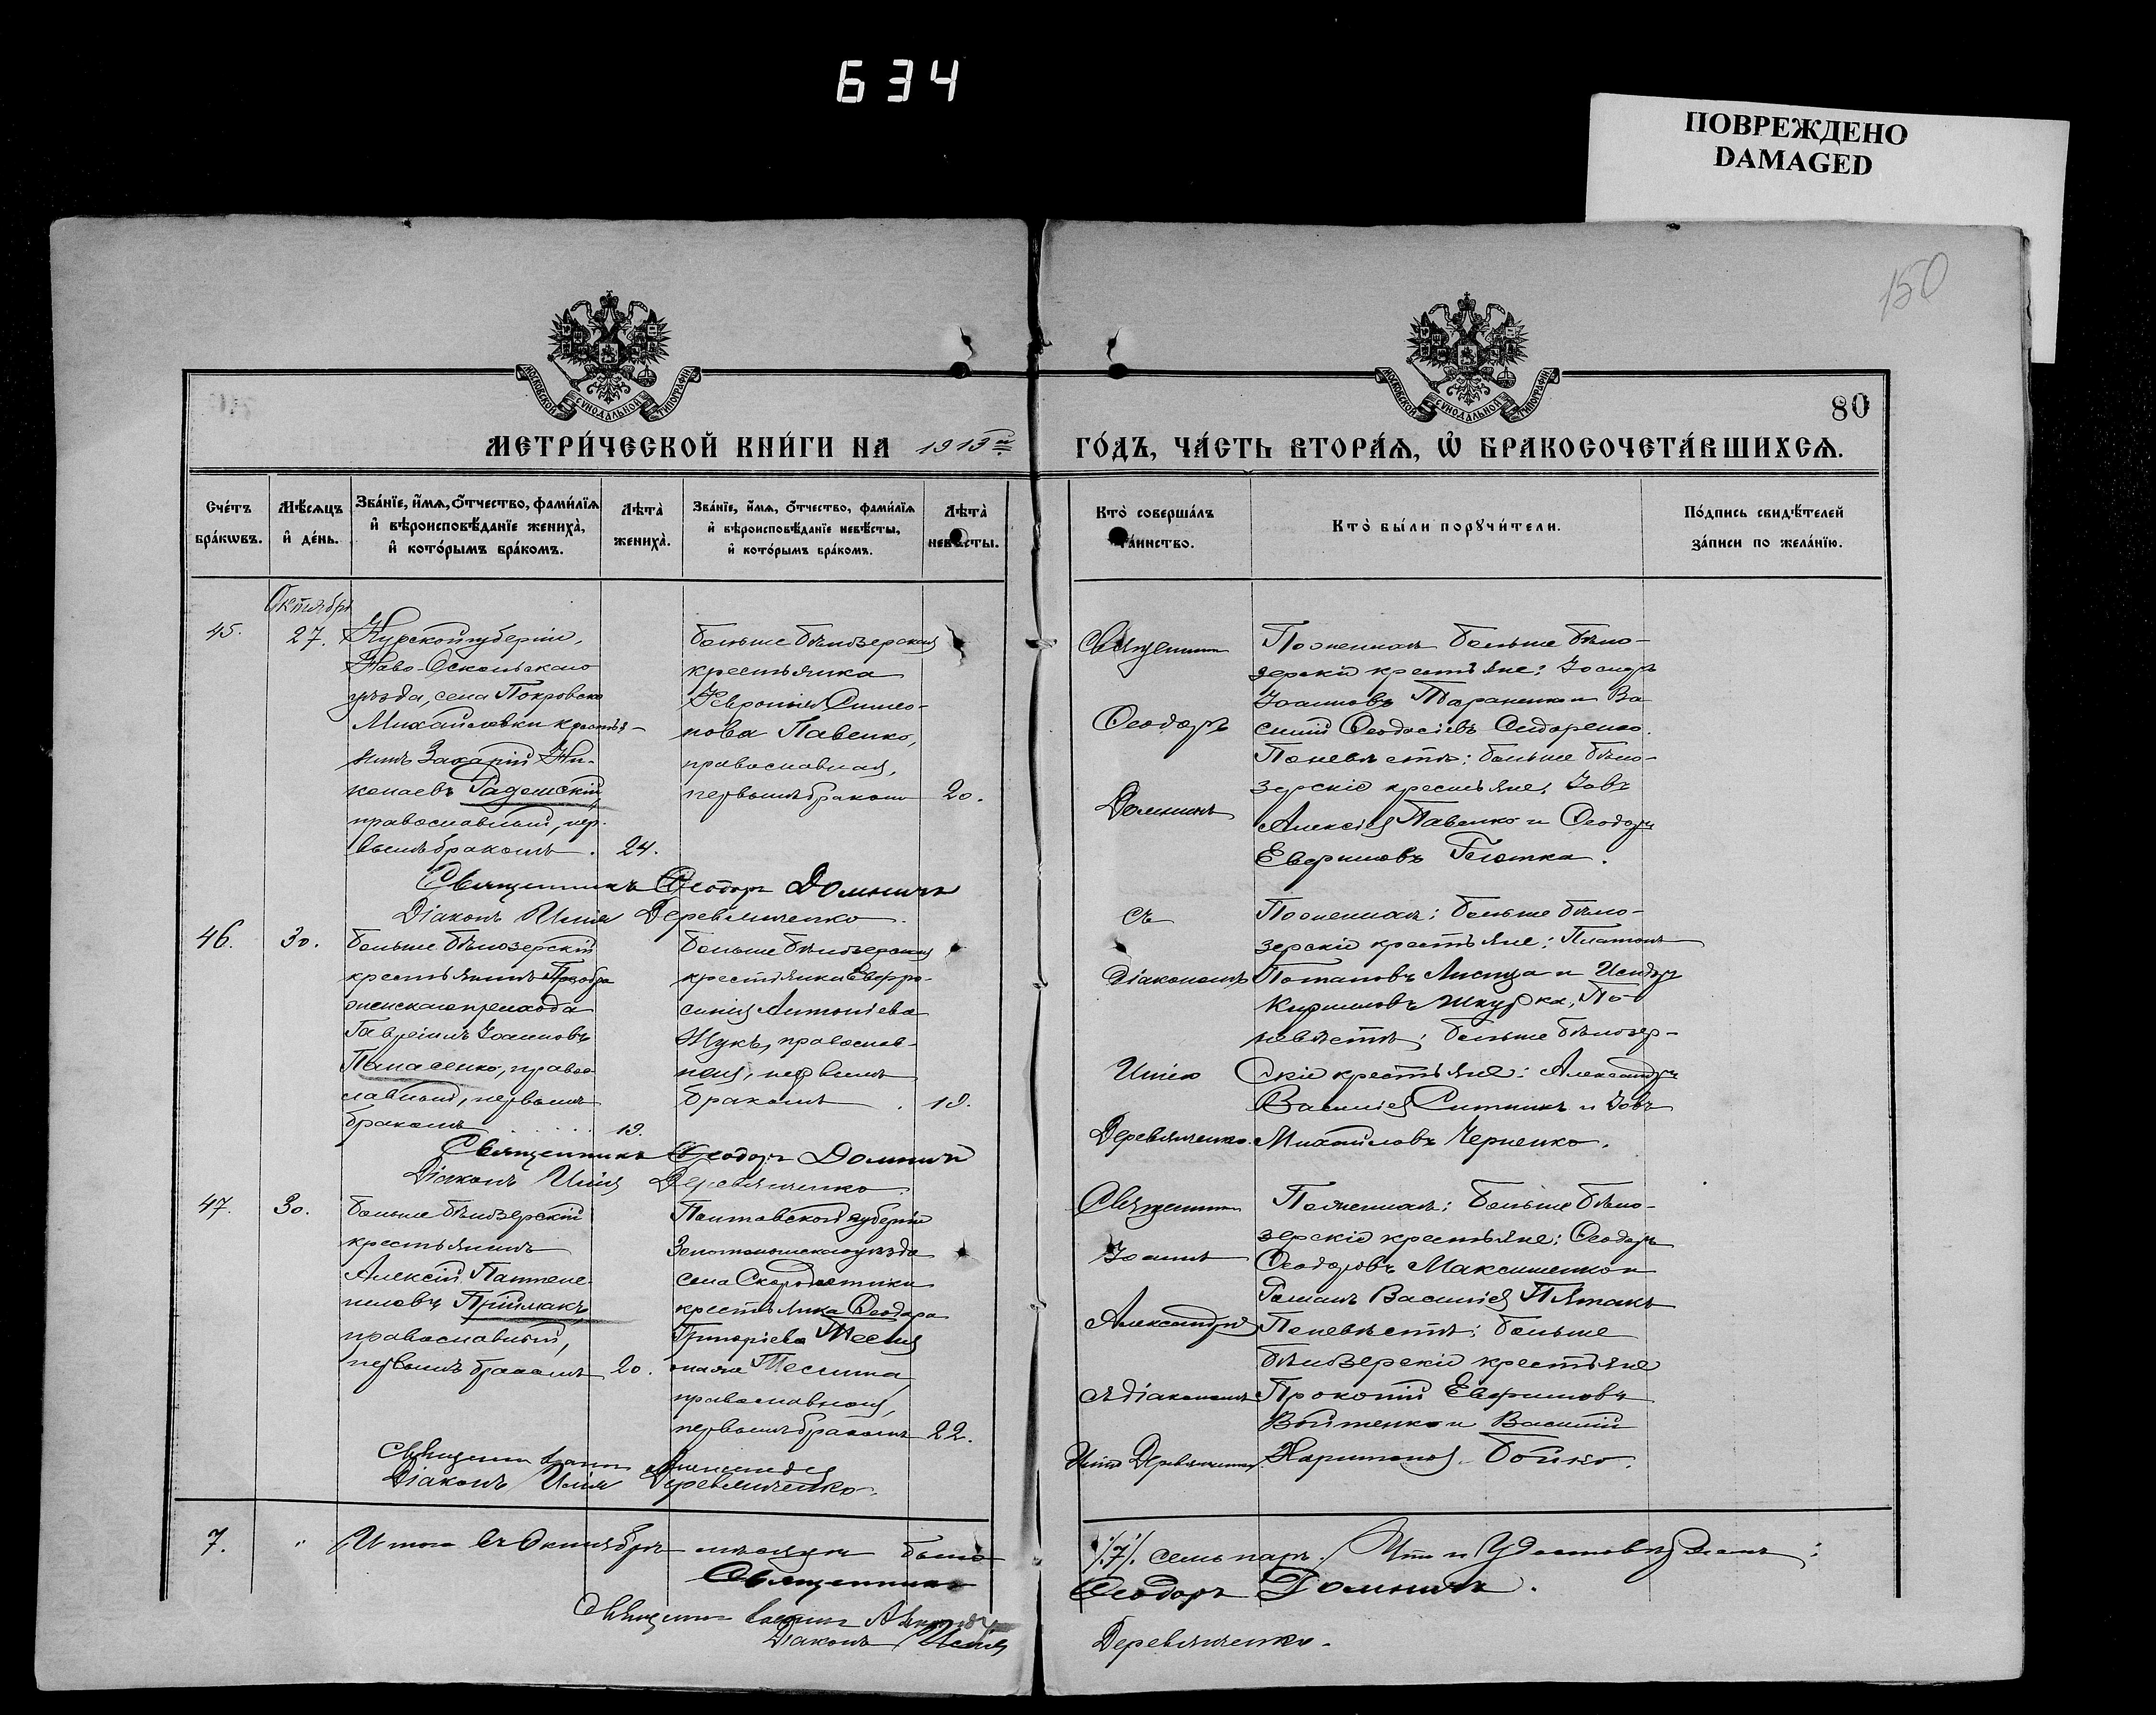 634
ПОВРЕЖДЕНО
DAMAGED
150
80
МОСКОВСКОЙ СУНОДАЛЬНОЙ ТИПОГРАФІИ
МОСКОВСКОЙ СУНОДАЛЬНОЙ ТИПОГРАФІИ
МЕТРИ́ЧЕСКОЙ КНИ́ГИ НА 1913 й
ГО́ДЪ, ЧА́СТЬ ВТОРА́Ѧ, Ѿ БРАКОСОЧЕТА́ВШИХСѦ.
Сче́тъ бра́кѡвъ.
Мѣ́сѧцъ и҆ де́нь.
Зва́нїе, и҆́мѧ, ѻ҆́тчество, фами́лїѧ и҆ вѣроисповѣ́данїе жениха̀, и҆ кото́рымъ бра́комъ.
Лѣ́та̀ жениха̀.
Зва́нїе, и҆́мѧ, ѻ҆́тчество, фами́лїѧ и҆ вѣроисповѣ́данїе невѣ́сты, и҆ кото́рымъ бра́комъ.
Лѣ́та̀ невѣ́сты.
Кто̀ соверша́лъ та́инство.
Кто̀ бы́ли порꙋчи́тели.
По́дпись свидѣ́телей за́писи по жела́нїю.
Октябрь
45.
27.
Курской губерніи,
Ново-Оскольскаго
уѣзда, села Покровско
Михайловки крестья-
нинъ Захарій Ни-
колаевъ Гадемскій,
православный, пер-
вымъ бракомъ. 24.
Больше бѣлозерская
крестьянка
Февронія Симео-
нова Павенко,
православная,
первымъ бракомъ 20.
Священникъ
Ѳеодоръ
Домничъ
По женихѣ: больше бѣло-
зерскіе крестьяне: Іосифъ
Іоанновъ Тараненко и Ва
силій Ѳеодосіевъ Сидоренко.
По невѣстѣ: больше бѣло-
зерскіе крестьяне, Іовъ
Алексіевъ Павенко и Ѳеодоръ
Евфимовъ
Священникъ Ѳеодоръ Домничъ
Діаконъ Илія Деревянченко.
46.
30.
Больше бѣлозерскій
крестьянинъ Преобра
женскаго прихода
Гавріилъ Іоанновъ
Панасенко, право-
славный, первымъ
бракомъ 19.
Больше бѣлозерская
крестьянка Евфро-
синія Антоніева
Жукъ, православ-
ная, первымъ
бракомъ . 19.
съ
діакономъ
Иліею
Деревянченко.
По женихѣ: больше бѣло-
зерскіе крестьяне: Платонъ
Потаповъ Лисица и Исидоръ
Кирилловъ Шкурка, По
невѣстѣ; больше бѣлозер-
скіе крестьяне: Александръ
Василіевъ Ситникъ и Іовъ
Михайловъ Черненко.
Священникъ Ѳеодоръ Домничъ
Діаконъ Илія Деревянченко.
47.
30.
Больше бѣлозерскій
крестьянинъ
Алексій Пантеле-
имовъ Приймакъ,
православный,
первымъ бракомъ 20.
Полтавской губерніи
Золотоношскаго уѣзда
села Скородистики
крестьянка Ѳеодора
Григоріева
православная,
первымъ бракомъ 22.
Священникъ
Іоаннъ
Александровъ
съ діакономъ
Иліею Деревянченко.
По женихѣ: больше бѣло-
зерскіе крестьяне: Ѳеодоръ
Ѳеодоровъ Максименко и
Романъ Василіевъ Пятакъ
По невѣстѣ: больше
бѣлозерскіе крестьяне
Прокопій Евфимовъ
Войтенко и Василій
Харитоновъ Бойко.
Священникъ Іоаннъ Александровъ
Діаконъ Илія Деревянченко.
7. " Итого въ Октябрѣ мѣсяцѣ было /7/. семь паръ. Что и удостовѣряемъ:
Священникъ Ѳеодоръ Домничъ.
Священникъ Іоаннъ
Діаконъ Илія Деревянченко.